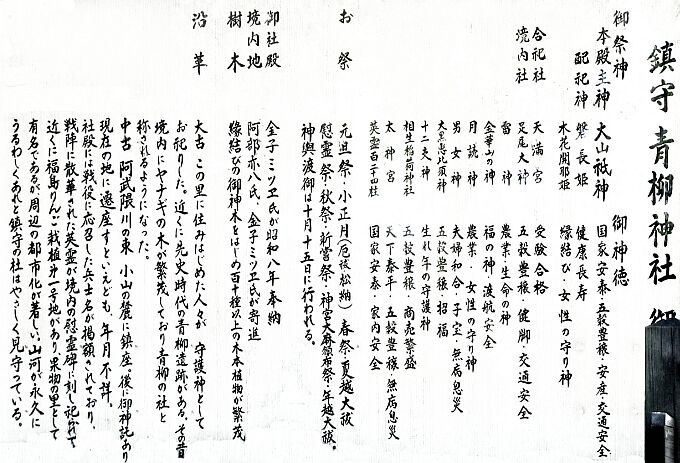 鎮守 青柳神社 御
御祭神 御神徳
本殿主神 大山祗神 国家安泰・五穀豊穣・安産・交通安全
配祀神 磐長姫 健康長寿
木花開耶姫 縁結び・女性の守り神
合祀社 天満宮 受験合格
境内社 足尾大神 五穀豊穣・健脚・交通安全
雷神 農業・生命の神
金華山の神 福の神・渡航安全
月読神 農業・女性の守り神
男女神 夫婦和合・子宝・無病息災
大黒恵比須神 五穀豊穣・招福
十二支神 生れ年の守護神
相生稲荷神社 五穀豊穣・商売繁盛
太神宮 天下泰平・五穀豊穣・無病息災
英霊百二十四柱 国家安泰・家内安全
お祭 元旦祭・小正月(厄祓松納) 春祭・夏越大祓
慰霊祭・秋祭・新嘗祭・神宮大麻頒布祭・年越大祓。
神輿渡御は十月十五日に行われる。
御社殿 金子ミツヱ氏が昭和八年奉納
境内地 阿部亦八氏、金子ミツヱ氏が寄進
樹木 縁結びの御神木をはじめ百十種以上の木本植物が繁茂
沿革 太古 この里に住みはじめた人々が 守護神として
お祀りした。近くに先史時代の青柳遺跡がある。その昔
境内にヤナギの木が繁茂しており青柳の社と
称されるようになった。
中古 阿武隈川の東 小山の麓に鎮座。後に御神託あり
現在の地に遷座すといえども、年月不詳。
社殿には戦役に応召した兵士名が掲額されており、
戦陣に散華された英霊が境内の慰霊碑に刻し記されて
近くに福島りんご栽植第一号地があり果物の里として
有名であるが、周辺の都市化が著しい。山河が永久に
うるわしくあれと鎮守の杜はやさしく見守っている。